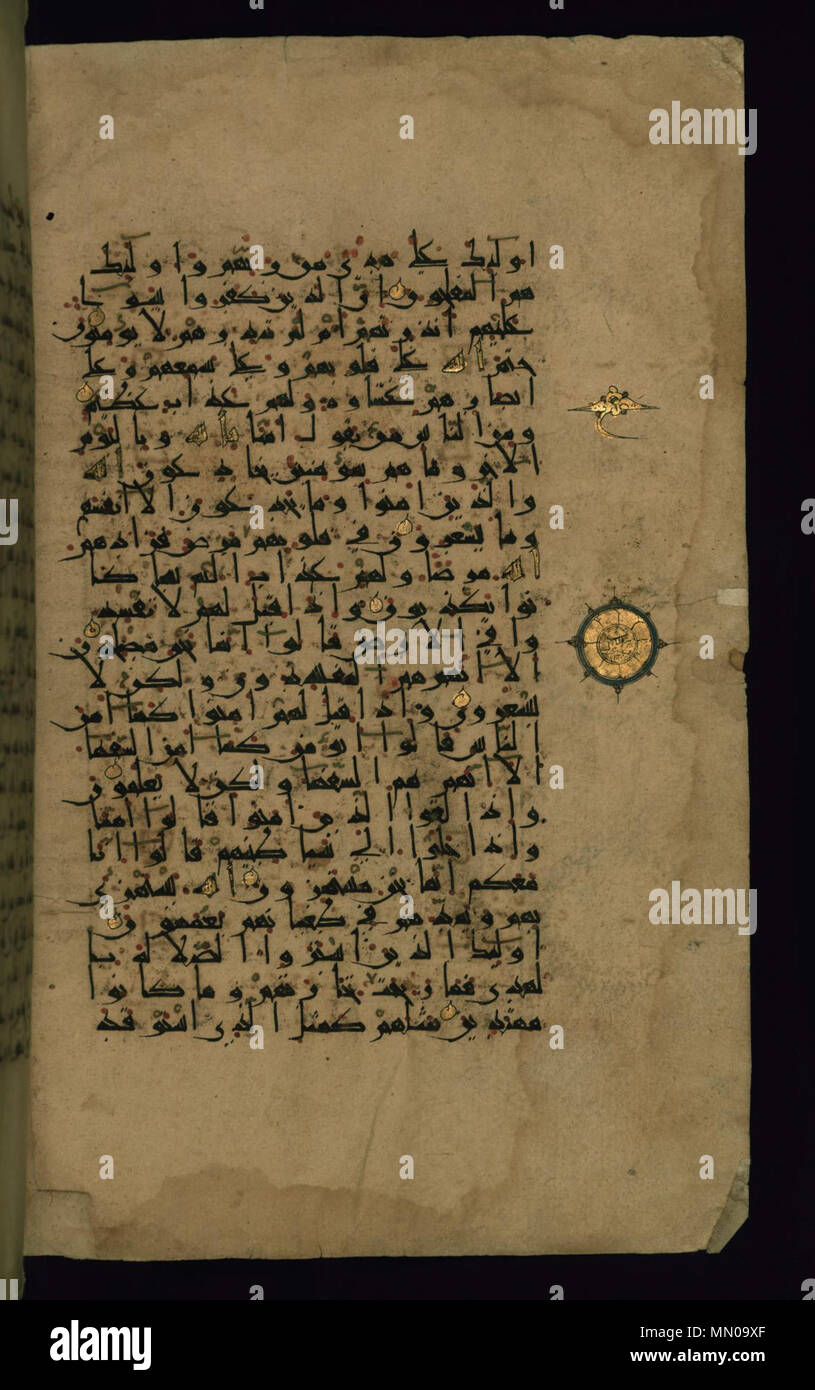 اولىك على هدى من ربهم واولىك
هم المفلحون ان الذين كفروا سوا
عليهم انذرتهم ام لم تنذرهم لا يومنون
ختم الله على قلوبهم وعلى سمعهم وعلى
ابصارهم غشاوه ولهم عذاب عظيم
ومن الناس من يقول امنا بالله وباليوم
الاخر وما هم بمومنين يخادعون الله
والذين امنوا وما يخدعون الا انفسهم
وما يشعرون في قلوبهم مرض فزادهم
الله مرضا ولهم عذاب اليم بما كا
نوا يكذبون واذا قيل لهم لا تفسد
وا في الارض قالوا انما نحن مصلحون
الا انهم هم المفسدون ولكن لا
يشعرون واذا قيل لهم امنوا كما امن
الناس قالوا انومن كما امن السفها
الا انهم هم السفها ولكن لا يعلمون
واذا لقوا الذين امنوا قالوا امنا
واذا خلوا الى شياطينهم قالوا انا
معكم انما نحن مستهزون الله يستهزى
بهم ويمدهم في طغيانهم يعمهون
اولىك الذين اشتروا الضلاله با
لهدى فما ربحت تجارتهم وما كانوا
مهتدين مثلهم كمثل الذى استوقد
alamy
Image ID: MM09XF
www.alamy.com